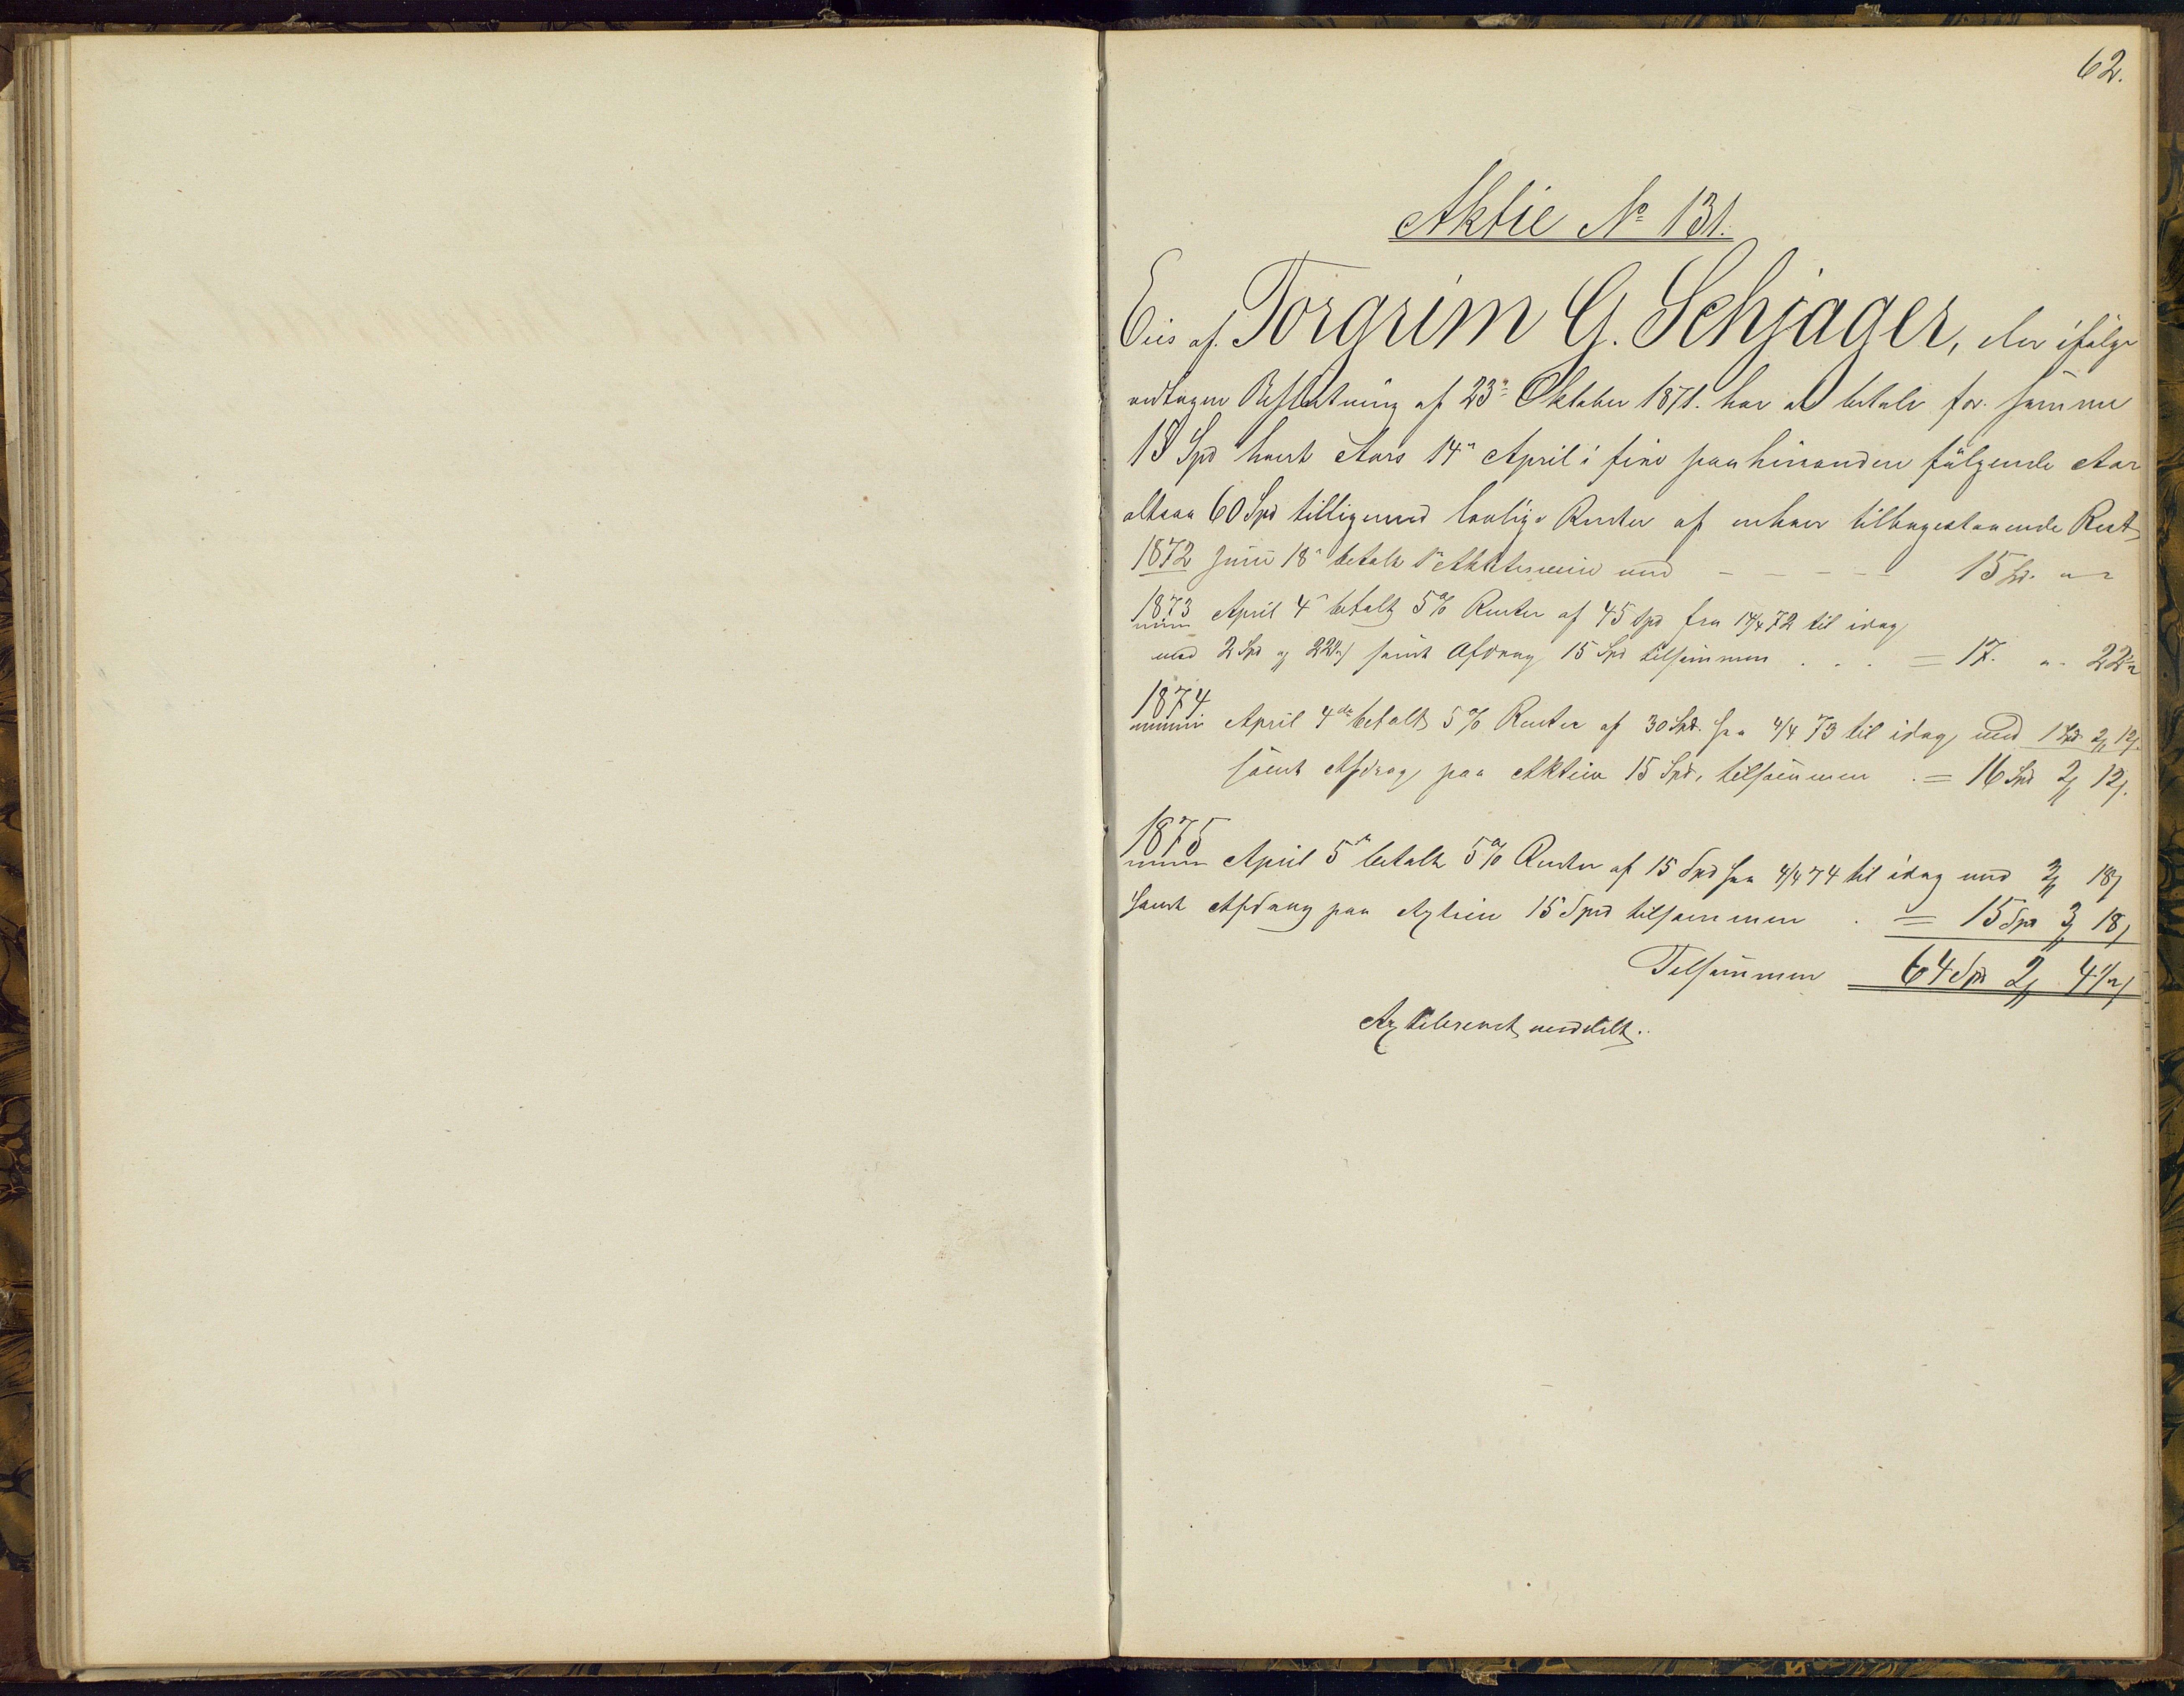 62.
Aktie No 131.
Eies af Torgrim G. Schjager, der ifølge
vedtagen Beslutning af 23de Oktober 1871. har at betale for samme
15 Spd hvert Aars 14de April i fire paa hinanden følgende Aar
altsaa 60 Spd tilligemed lovlige Renter af enhver tilbagestaaende Rest
1872 Juni 18de betalt 1ste med - - - - 15 Spd. " "
1873 April 4de betalt 5% Renter af 45 Spd fra 14/4 72 til idag
med 2 Spd og 22½ s samt Afdrag 15 Spd tilsammen . . . = 17. " 22½
1874 April 4de betalt 5% Renter af 30 Spd. fra 4/4 73 til idag med 1 Spd 2 12 s.
samt Afdrag paa Aktien 15 Spd, tilsammen . = 16 Spd 2 12 s.
1875 April 5te betalt 5% Renter af 15 Spd fra 4/4 74 til idag med 3 18 s
samt Afdrag paa Aktien 15 Spd tilsammen . = 15 Spd 3 18 s
Tilsammen 64 Spd 2 4½ s
Aktiebrevet meddelt.